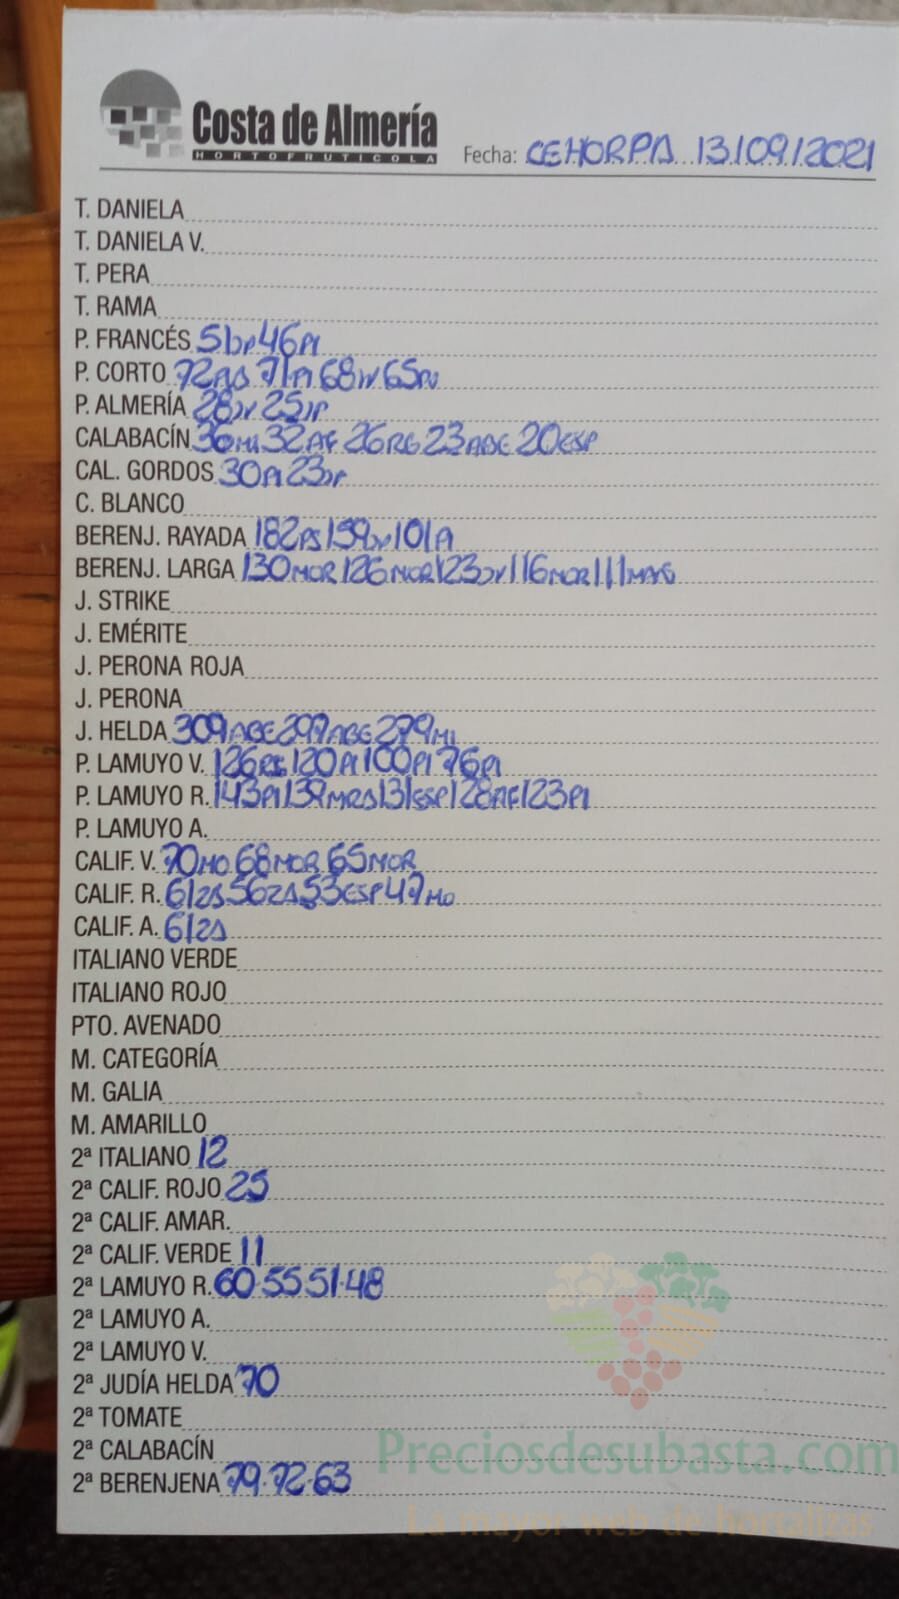 Costa de Almería
HORTOFRUTICOLA
Fecha: CEHORPA 13/09/2021
T. DANIELA
T. DANIELA V.
T. PERA
T. RAMA
P. FRANCÉS 51DP 46PI
P. CORTO 72 71PI 68JV 65
P. ALMERÍA 28JV 25JP
CALABACÍN 36MI 32AF 26RG 23ABE 20ESP
CAL. GORDOS 30PI 23JP
C. BLANCO
BERENJ. RAYADA 182PS 159JV 101PI
BERENJ. LARGA 130MOR 126MOR 123JV 116MOR 111MAYS
J. STRIKE
J. EMÉRITE
J. PERONA ROJA
J. PERONA
J. HELDA 309ABE 297ABE 279MI
P. LAMUYO V. 126RG 120PI 100PI 76PI
P. LAMUYO R. 143PI 139MRA 131ESP 128AF 123PI
P. LAMUYO A.
CALIF. V. 70MO 68MOR 65MOR
CALIF. R. 61ZA 56ZA 53ESP 47MO
CALIF. A. 61ZA
ITALIANO VERDE
ITALIANO ROJO
PTO. AVENADO
M. CATEGORÍA
M. GALIA
M. AMARILLO
2ª ITALIANO 12
2ª CALIF. ROJO 25
2ª CALIF. AMAR.
2ª CALIF. VERDE 11
2ª LAMUYO R. 60-55 51-48
2ª LAMUYO A.
2ª LAMUYO V.
2ª JUDÍA HELDA 70
2ª TOMATE
2ª CALABACÍN
2ª BERENJENA 79-72-63
Preciosdesubasta.com
La mayor web de hortalizas